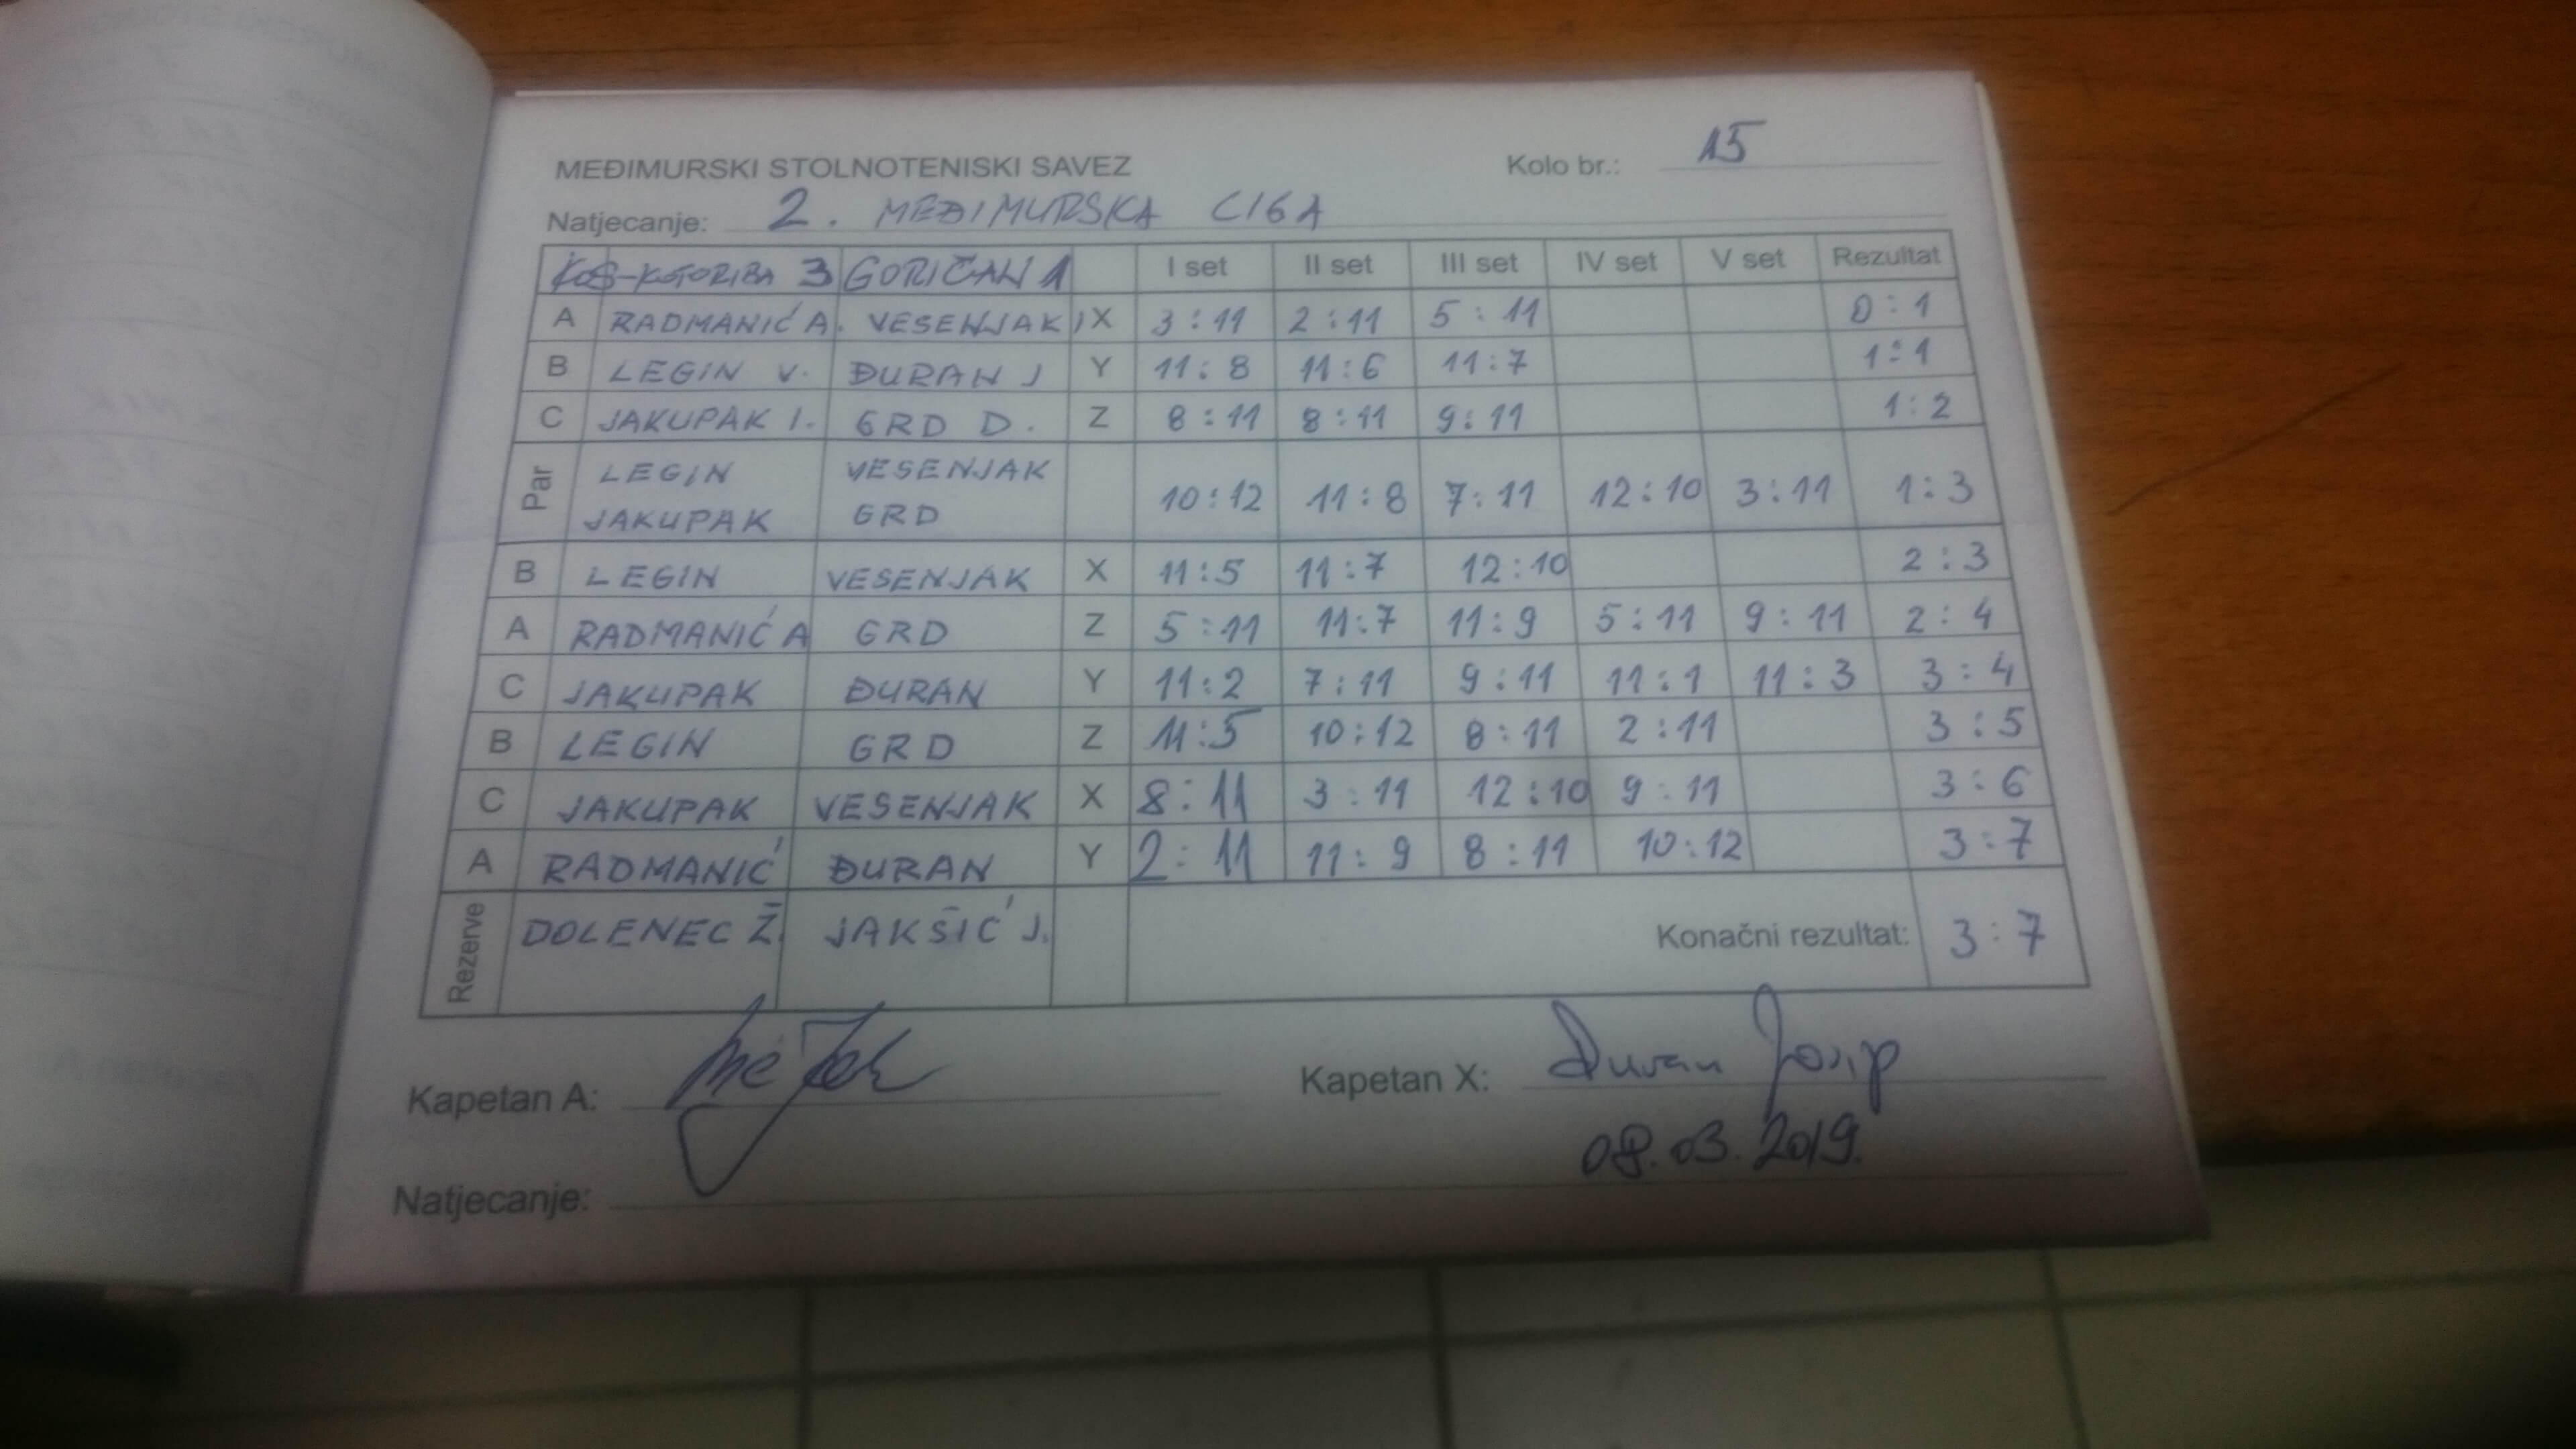 MEĐIMURSKI STOLNOTENISKI SAVEZ Kolo br.: 15
Natjecanje: 2. MEĐIMURSKA LIGA
KOS-KOTORIBA 3 GORIČAN 1 I set II set III set IV set V set Rezultat
A RADMANIĆ A. VESENJAK I X 3:11 2:11 5:11 0:1
B LEGIN V. ĐURAN J Y 11:8 11:6 11:7 1:1
C JAKUPAK I. GRD D. Z 8:11 8:11 9:11 1:2
Par LEGIN VESENJAK 10:12 11:8 7:11 12:10 3:11 1:3
JAKUPAK GRD
B LEGIN VESENJAK X 11:5 11:7 12:10 2:3
A RADMANIĆ A GRD Z 5:11 11:7 11:9 5:11 9:11 2:4
C JAKUPAK ĐURAN Y 11:2 7:11 9:11 11:1 11:3 3:4
B LEGIN GRD Z 11:5 10:12 8:11 2:11 3:5
C JAKUPAK VESENJAK X 8:11 3:11 12:10 9:11 3:6
A RADMANIĆ ĐURAN Y 2:11 11:9 8:11 10:12 3:7
Rezerve DOLENEC Ž. JAKŠIĆ J. Konačni rezultat: 3:7
Kapetan A: Kapetan X: Đuran Josip
08.03.2019.
Natjecanje: